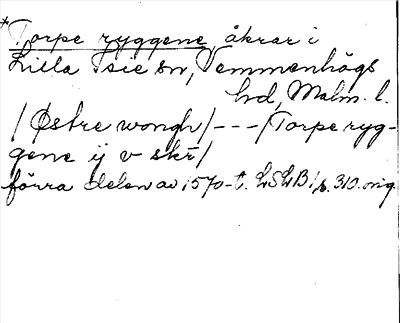 *Torpe ryggene, åkrar i
Lilla Isie sn, Vemmenhögs
hd, Malm. l.
/Østre wongh/---/Torpe ryg-
gene ij v skr/
förra delen av 1570-t. LSLB, s. 310. orig.